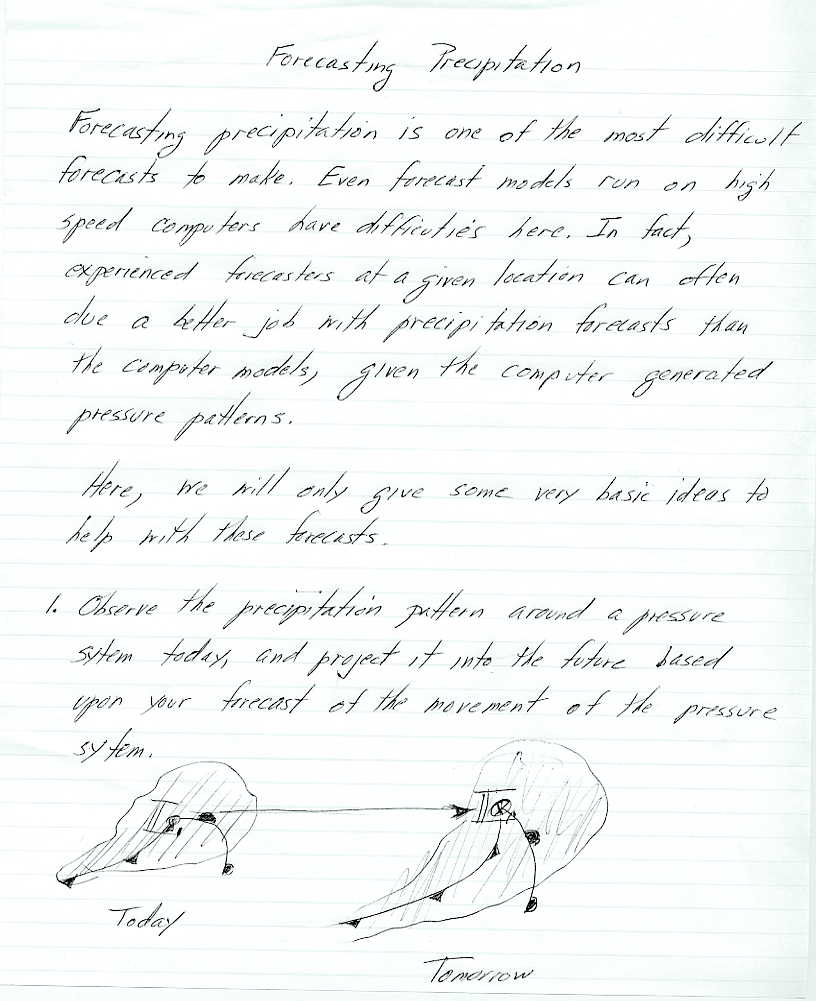 Forecasting Precipitation
Forecasting precipitation is one of the most difficult
forecasts to make. Even forecast models run on high
speed computers have difficulties here. In fact,
experienced forecasters at a given location can often
due a better job with precipitation forecasts than
the computer models, given the computer generated
pressure patterns.
Here, we will only give some very basic ideas to
help with these forecasts.
1. Observe the precipitation pattern around a pressure
sytem today, and project it into the future based
upon your forecast of the movement of the pressure
sytem.
Today
Tomorrow